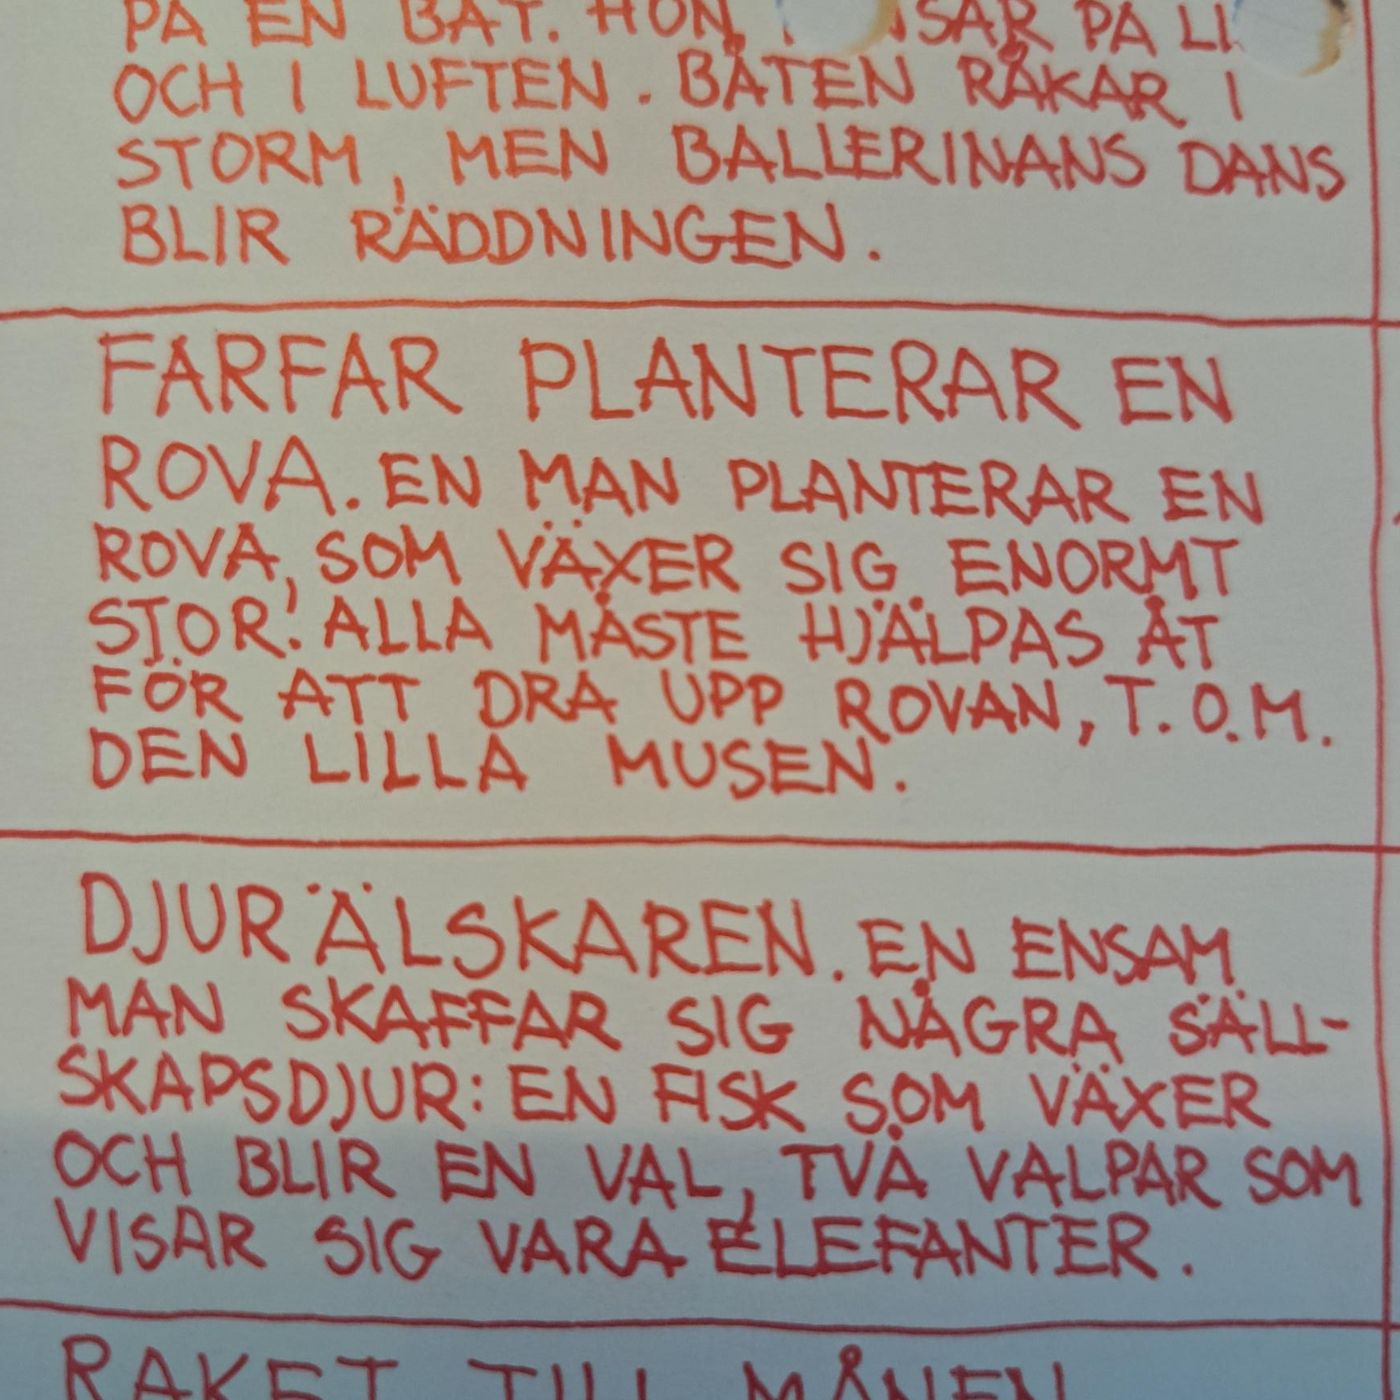 PÅ EN BÅT. HON PÅ
OCH I LUFTEN. BÅTEN RÅKAR I
STORM, MEN BALLERINANS DANS
BLIR RÄDDNINGEN.
FARFAR PLANTERAR EN
ROVA. EN MAN PLANTERAR EN
ROVA, SOM VÄXER SIG ENORMT
STOR! ALLA MÅSTE HJÄLPAS ÅT
FÖR ATT DRA UPP ROVAN, T.O.M.
DEN LILLA MUSEN.
DJURÄLSKAREN. EN ENSAM
MAN SKAFFAR SIG NÅGRA SÄLL-
SKAPSDJUR: EN FISK SOM VÄXER
OCH BLIR EN VAL, TVÅ VALPAR SOM
VISAR SIG VARA ELEFANTER.
RAKET TILL MÅNEN